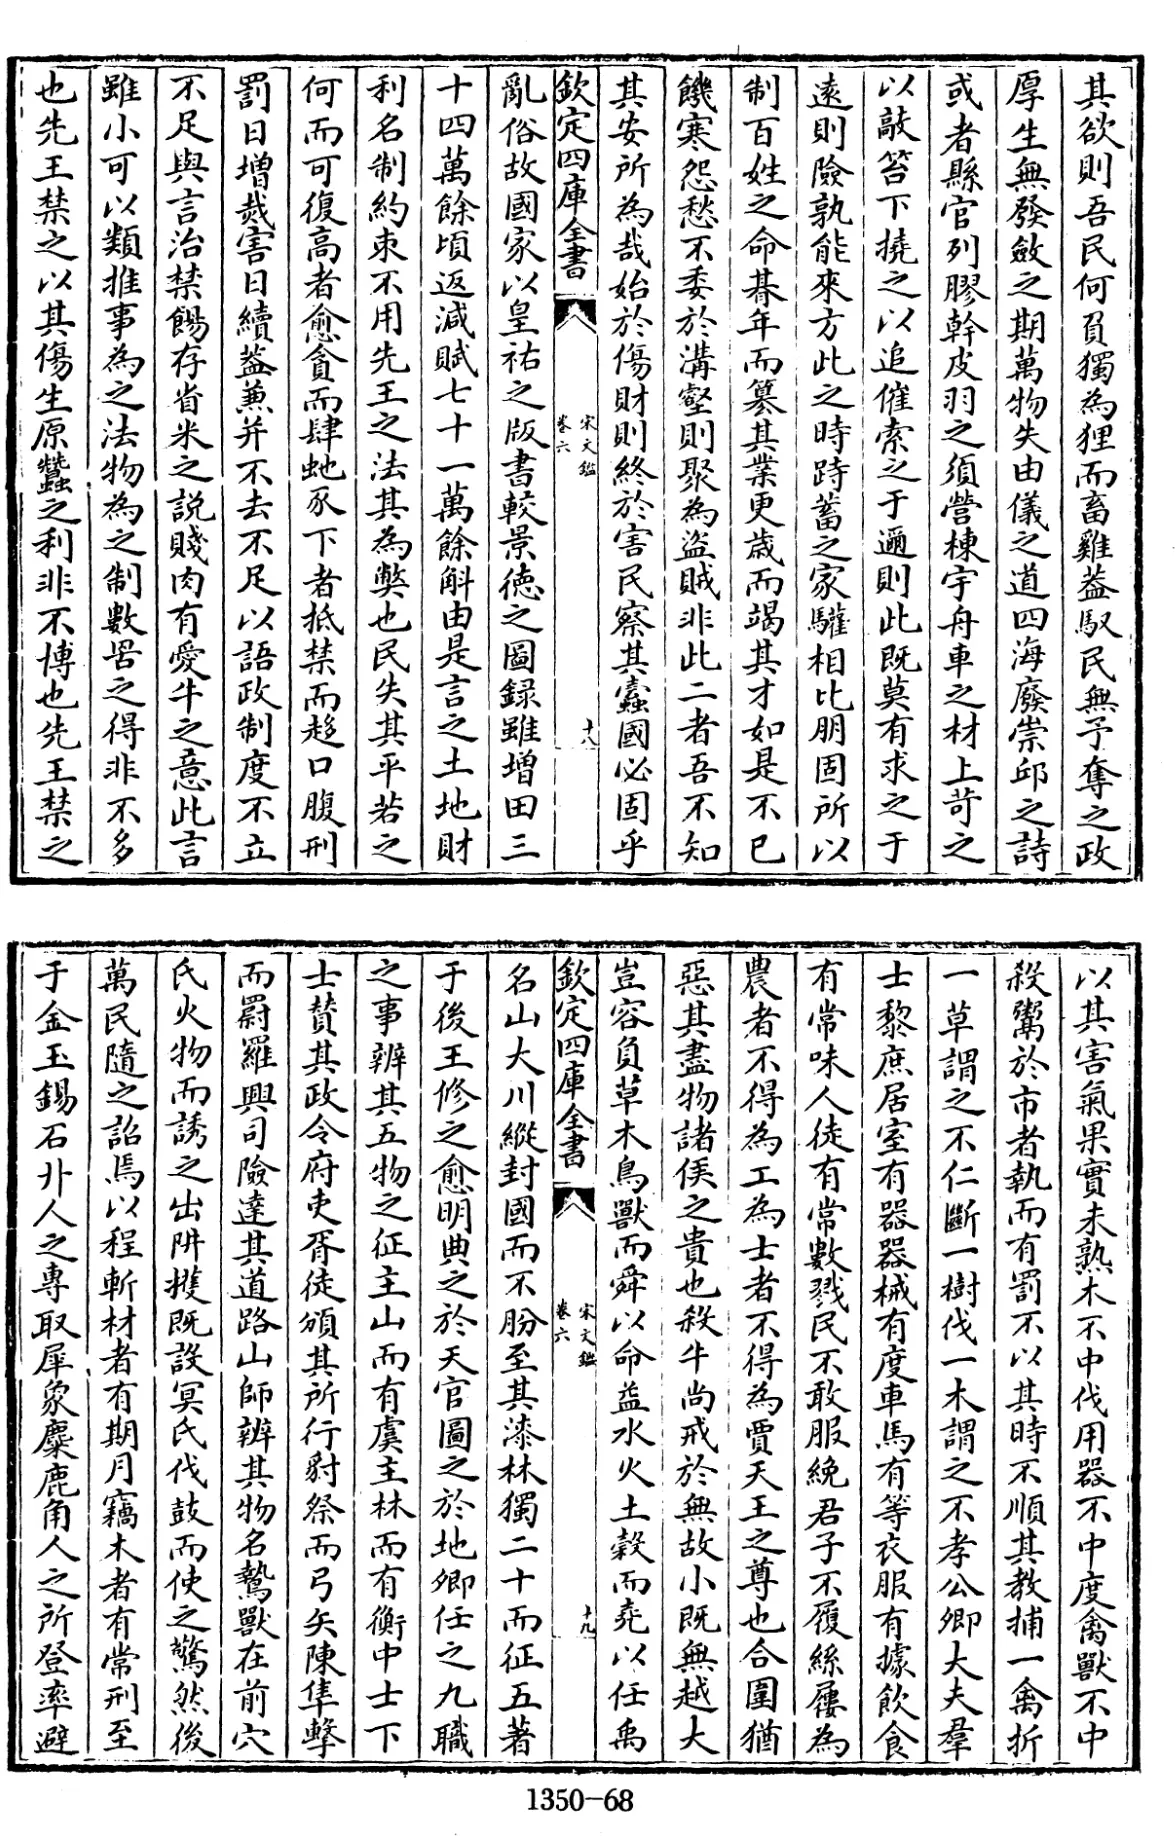 其欲則吾民何負獨為狸而畜雞葢馭民無予奪之政
厚生無發斂之期萬物失由儀之道四海廢崇邱之詩
或者縣官列膠幹皮羽之須營棟宇舟車之材上苛之
以敲笞下撓之以追催索之于邇則此既莫有求之于
遠則險孰能來方此之時跱蓄之家驩相比朋固所以
制百姓之命朞年而篡其業更歲而竭其才如是不已
饑寒怨愁不委於溝壑則聚為盜賊非此二者吾不知
其安所為哉始於傷財則終於害民察其蠹國必固乎
欽定四庫全書
宋文鑑
卷六
十八
亂俗故國家以皇祐之版書較景德之圖録雖增田三
十四萬餘頃返減賦七十一萬餘斛由是言之土地財
利名制約束不用先王之法其為獘也民失其平若之
何而可復高者愈貪而肆虵豕下者抵禁而趍口腹刑
罰日增烖害日續葢兼并不去不足以語政制度不立
不足與言治禁餳存省米之説賤肉有愛牛之意此言
雖小可以類推事為之法物為之制數罟之得非不多
也先王禁之以其傷生原蠶之利非不博也先王禁之
以其害氣果實未熟木不中伐用器不中度禽獸不中
殺鬻於市者執而有罰不以其時不順其教捕一禽折
一草謂之不仁斷一樹伐一木謂之不孝公卿大夫羣
士黎庶居室有器器械有度車馬有等衣服有據飲食
有常味人徒有常數戮民不敢服絻君子不履絲屨為
農者不得為工為士者不得為賈天王之尊也合圍猶
惡其盡物諸侯之貴也殺牛尚戒於無故小既無越大
豈容負草木鳥獸而舜以命益水火土榖而堯以任禹
欽定四庫全書
宋文鑑
卷六
十九
名山大川縱封國而不朌至其漆林獨二十而征五著
于後王修之愈明典之於天官圖之於地卿任之九職
之事辨其五物之征主山而有虞主林而有衡中士下
士賛其政令府吏胥徒頒其所行豺祭而弓矢陳隼擊
而罻羅興司險達其道路山師辨其物名鷙獸在前穴
氏火物而誘之出阱擭既設冥氏伐鼓而使之驚然後
萬民隨之詔焉以程斬材者有期月竊木者有常刑至
于金玉錫石廾人之專取犀象麋鹿角人之所登率避
1350-68